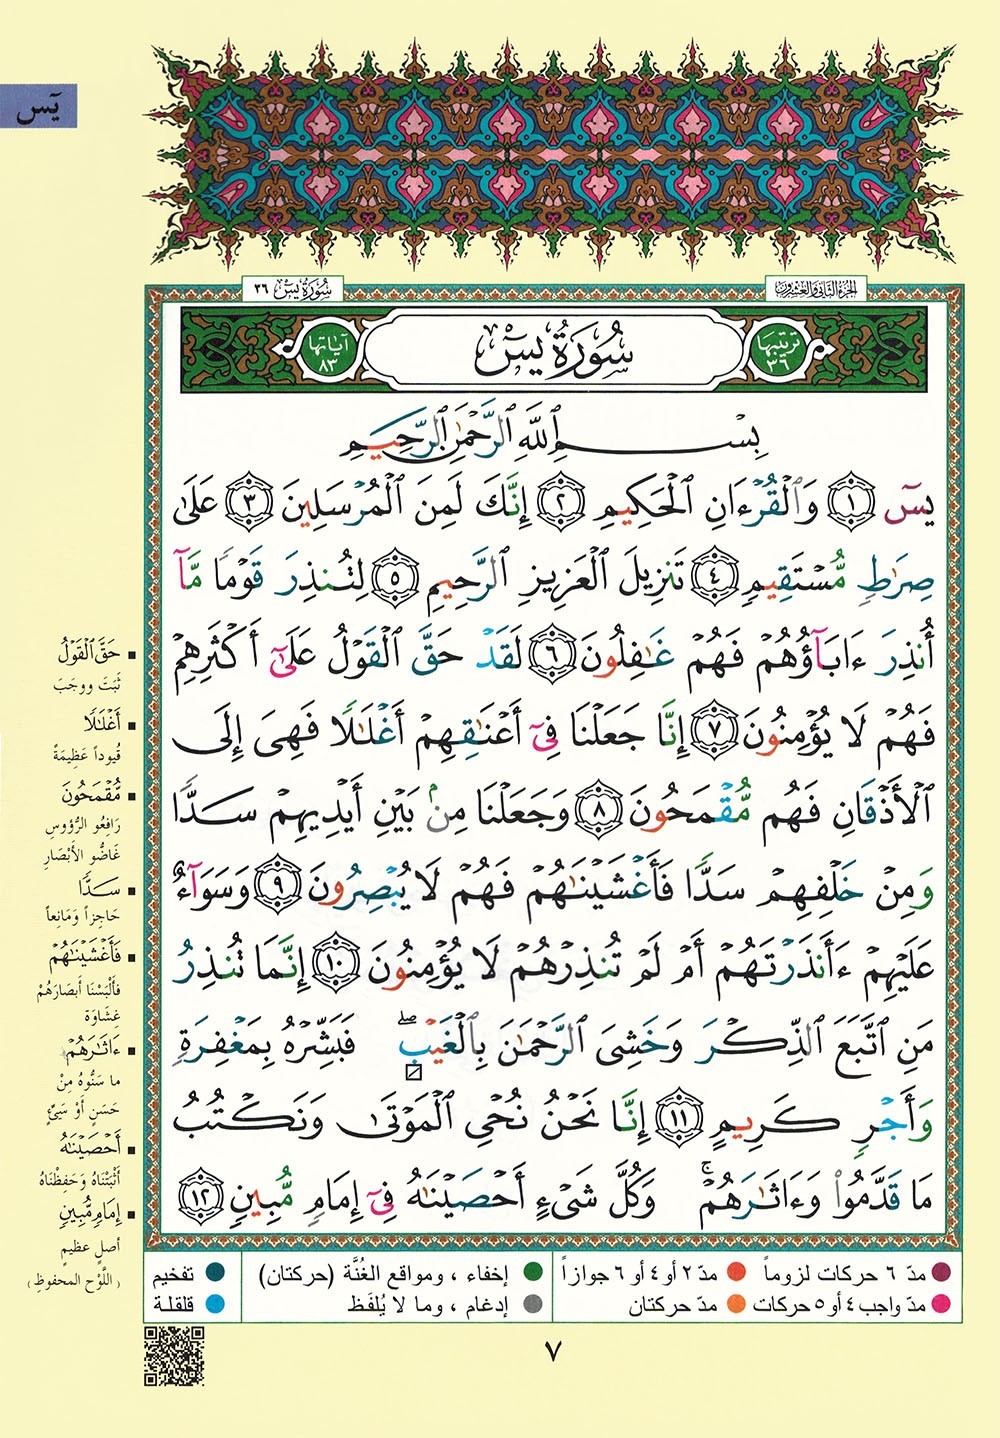 يٓسٓ
سُورَةُ يسٓ ٣٦
الجزء الثاني والعشرون
ترتيبها ٣٦
سُورَةُ يسٓ
آياتها ٨٣
بِسْمِ ٱللَّهِ ٱلرَّحْمَٰنِ ٱلرَّحِيمِ
يسٓ ١ وَٱلْقُرْءَانِ ٱلْحَكِيمِ ٢ إِنَّكَ لَمِنَ ٱلْمُرْسَلِينَ ٣ عَلَىٰ
صِرَٰطٍ مُّسْتَقِيمٍ ٤ تَنزِيلَ ٱلْعَزِيزِ ٱلرَّحِيمِ ٥ لِتُنذِرَ قَوْمًا مَّآ
أُنذِرَ ءَابَآؤُهُمْ فَهُمْ غَٰفِلُونَ ٦ لَقَدْ حَقَّ ٱلْقَوْلُ عَلَىٰٓ أَكْثَرِهِمْ
فَهُمْ لَا يُؤْمِنُونَ ٧ إِنَّا جَعَلْنَا فِىٓ أَعْنَٰقِهِمْ أَغْلَٰلًا فَهِىَ إِلَى
ٱلْأَذْقَانِ فَهُم مُّقْمَحُونَ ٨ وَجَعَلْنَا مِنۢ بَيْنِ أَيْدِيهِمْ سَدًّا
وَمِنْ خَلْفِهِمْ سَدًّا فَأَغْشَيْنَٰهُمْ فَهُمْ لَا يُبْصِرُونَ ٩ وَسَوَآءٌ
عَلَيْهِمْ ءَأَنذَرْتَهُمْ أَمْ لَمْ تُنذِرْهُمْ لَا يُؤْمِنُونَ ١٠ إِنَّمَا تُنذِرُ
مَنِ ٱتَّبَعَ ٱلذِّكْرَ وَخَشِىَ ٱلرَّحْمَٰنَ بِٱلْغَيْبِ ۖ فَبَشِّرْهُ بِمَغْفِرَةٍ
وَأَجْرٍ كَرِيمٍ ١١ إِنَّا نَحْنُ نُحْىِ ٱلْمَوْتَىٰ وَنَكْتُبُ
مَا قَدَّمُوا۟ وَءَاثَٰرَهُمْ ۚ وَكُلَّ شَىْءٍ أَحْصَيْنَٰهُ فِىٓ إِمَامٍ مُّبِينٍ ١٢
حَقَّ ٱلْقَوْلُ
ثَبَتَ ووجَبَ
أَغْلَٰلًا
قُيوداً عَظِيمَةً
مُّقْمَحُونَ
رَافِعُو الرُّؤوسِ
غَاضُّو الأَبْصَارِ
سَدًّا
حَاجِزاً وَمَانِعاً
فَأَغْشَيْنَٰهُمْ
فألْبَسْنَا أبصَارَهُمْ
غِشَاوَة
ءَاثَٰرَهُمْ
ما سَنُّوهُ مِنْ
حَسَنٍ أَوْ سَيِّئٍ
أَحْصَيْنَٰهُ
أَثْبَتْنَاهُ وَحَفِظْنَاهُ
إِمَامٍ مُّبِينٍ
أصلٍ عظيمٍ
(اللَّوْحِ المحفوظِ)
مدّ ٦ حركات لزوماً مدّ ٢ أو ٤ أو ٦ جوازاً إخفاء ، ومواقع الغُنَّة (حركتان) تفخيم
مدّ واجب ٤ أو ٥ حركات مدّ حركتان إدغام ، وما لا يُلفَظ قلقلة
٧